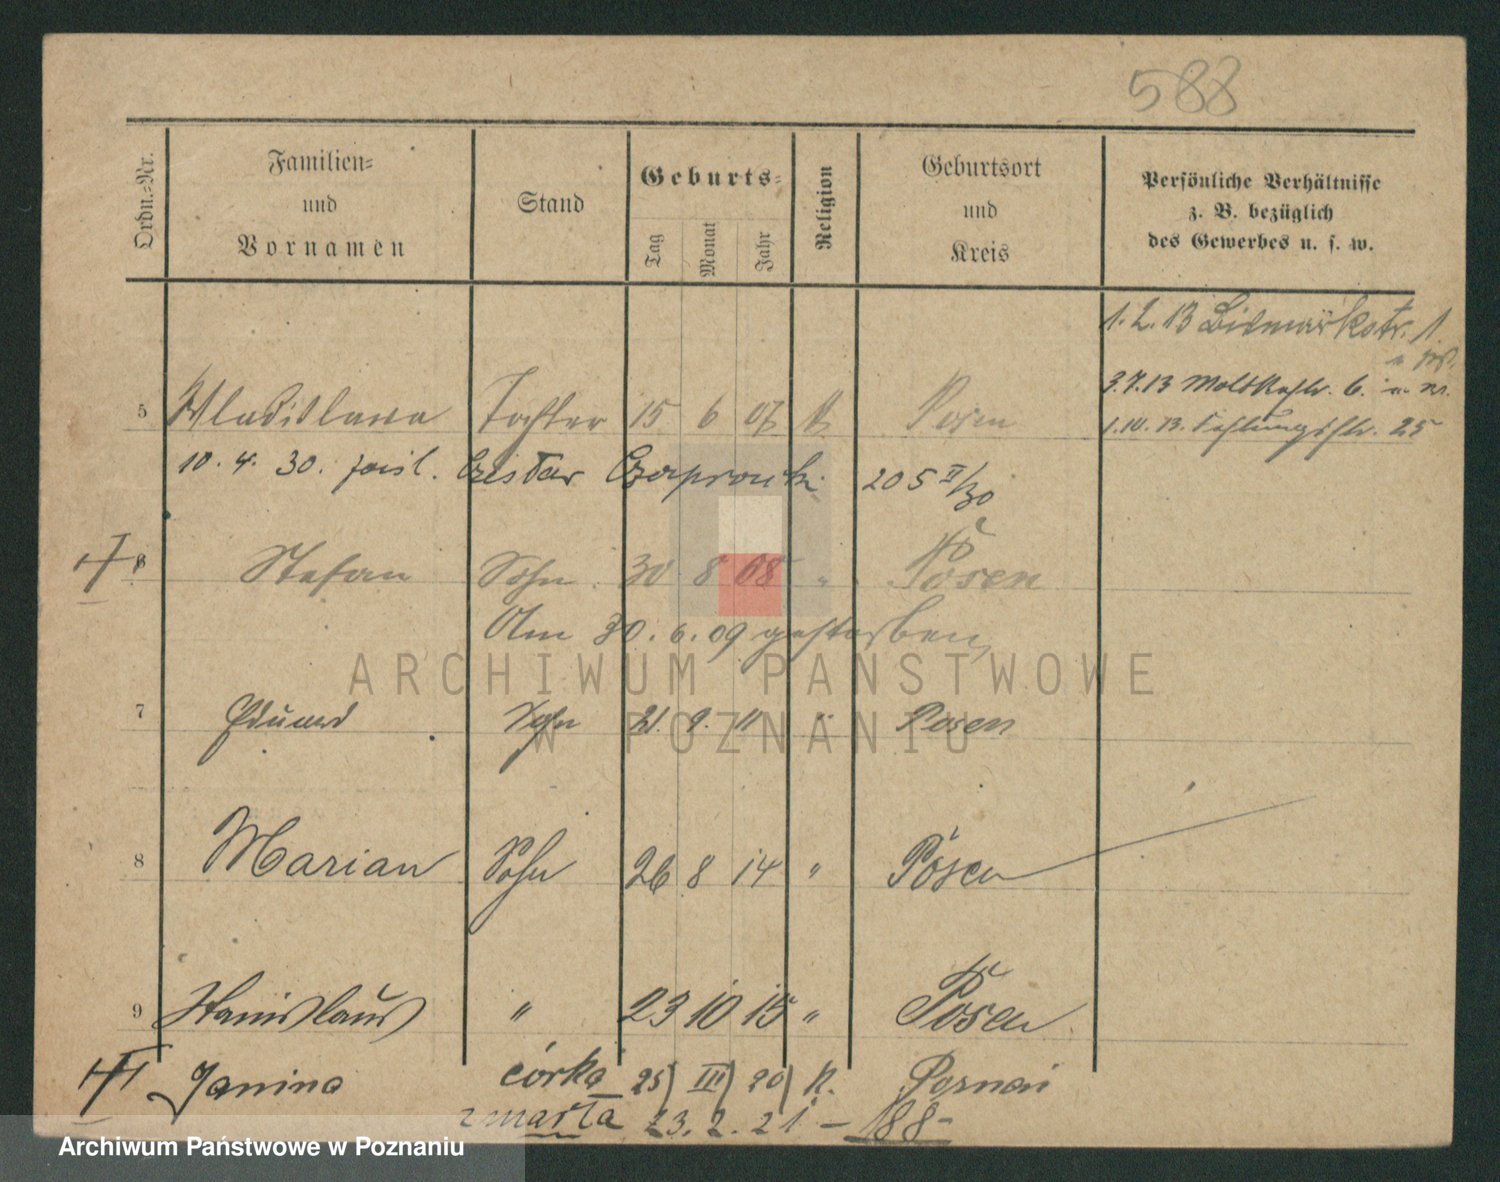 588
Ordn.-Nr.
Familien-
und
Vornamen
Stand
Geburts-
Tag
Monat
Jahr
Religion
Geburtsort
und
Kreis
Persönliche Verhältnisse
z. B. bezüglich
des Gewerbes u. s. w.
1. 2. 13 Bismarkstr. 1.
3.7.13 Moltkestr. 6.
5 Wladislawa Tochter 15 6 07 K Posen
1.10.13. 25
10. 4. 30. 205 II/30
6 Stefan Sohn 30 8 08 " Posen
Am 30. 6. 09 gestorben,
7 Eduard Sohn 21. 9. 11 " Posen
8 Marian Sohn 26 8 14 " Posen
9 Stanislaus " 23 10 15 " Posen
Janina córka 25) III) 20) K. Poznań
zmarła 23. 2. 21 – 188-
ARCHIWUM PAŃSTWOWE
W POZNANIU
Archiwum Państwowe w Poznaniu